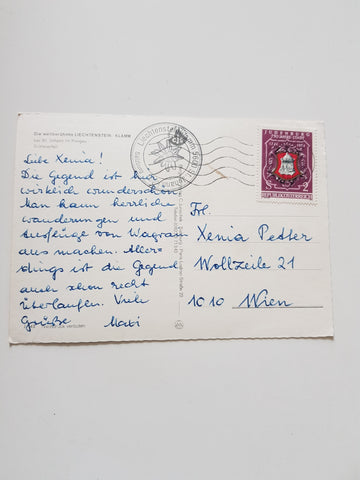 Die weltberühmte LIECHTENSTEIN-KLAMM
bei St. Johann im Pongau
Liebe Xenia!
Die Gegend ist hier
wirklich wunderschön.
Man kann herrliche
wanderungen und
Ausflüge von Wagrain
aus machen. Aller-
dings ist die Gegend
auch schon recht
überlaufen. Viele
Grüße Mabi
Frl.
Xenia Petter
Wollzeile 21
1010 Wien
Liechtensteinklamm
JUDENBURG
REPUBLIK ÖSTERREICH